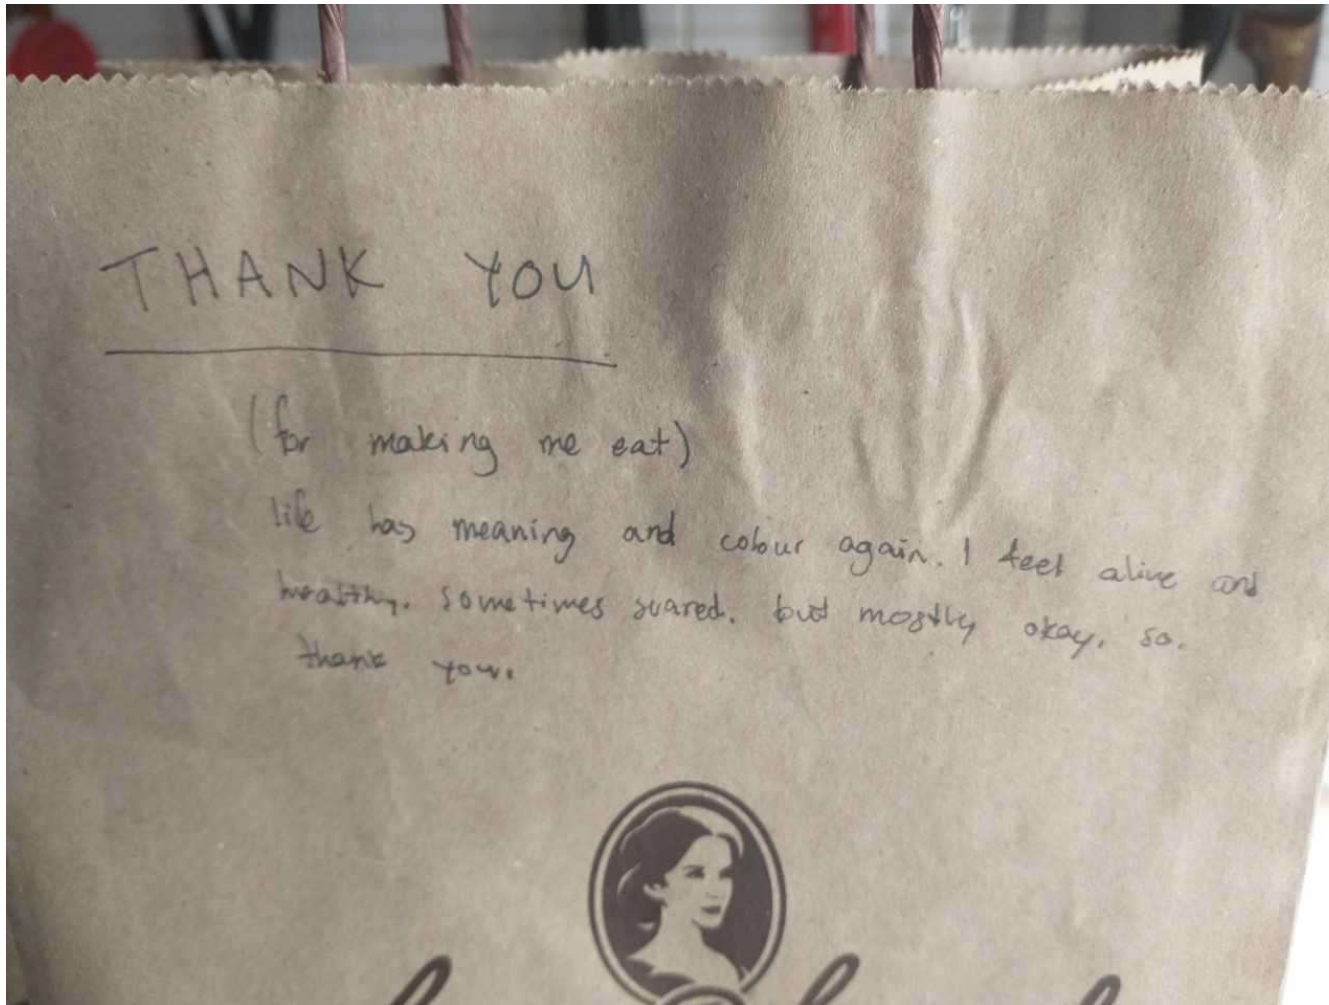 THANK YOU
(for making me eat)
life has meaning and colour again. I feel alive and
healthy. sometimes scared. but mostly okay. so.
thank you.